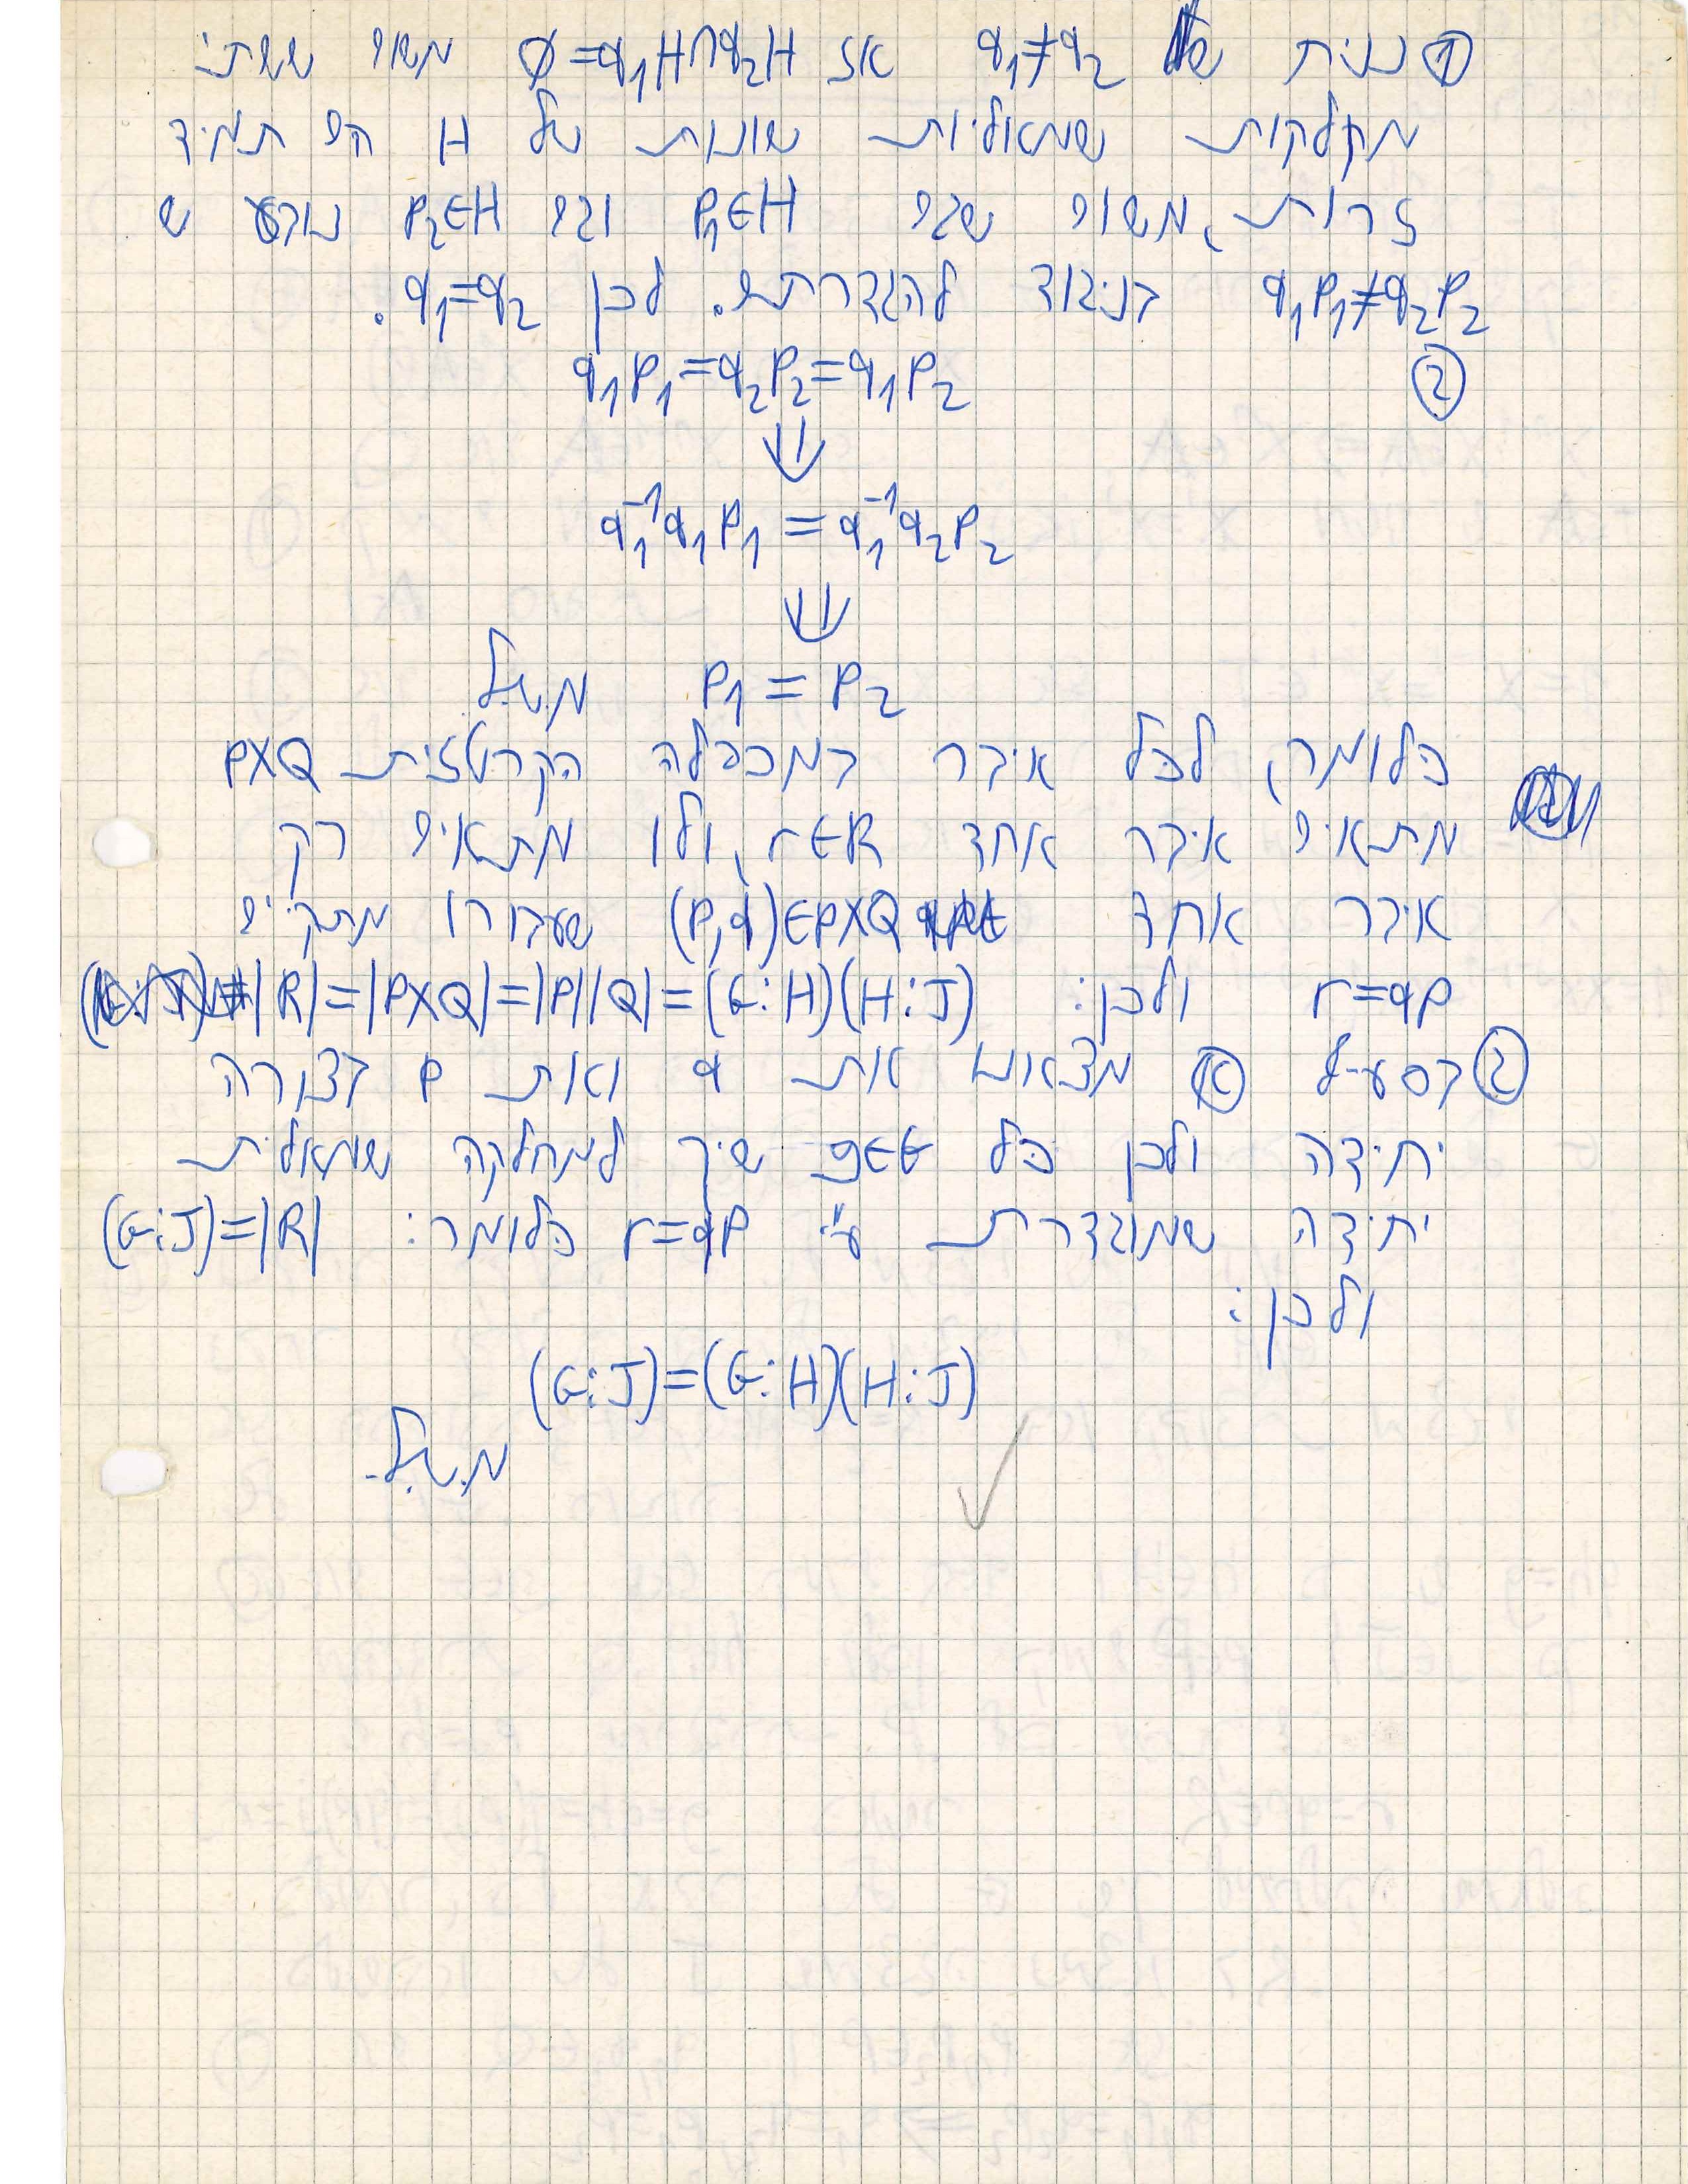 ① נניח q₁≠q₂ אז q₁H∩q₂H=∅ משום ששתי
מחלקות שמאליות שונות של H הם תמיד
זרות, משום שגם p₁∈H וגם p₂∈H נובע ש
q₁p₁≠q₂p₂ בניגוד להגדרתם. לכן q₁=q₂.
② q₁p₁=q₂p₂=q₁p₂
⇓
q₁⁻¹q₁p₁=q₁⁻¹q₂p₂
⇓
p₁=p₂ מ.ש.ל.
כלומר, לכל איבר במכפלה הקרטזית P×Q
מתאים איבר אחד r∈R, ולו מתאים רק
איבר אחד (p,q)∈P×Q שעבורו מתקיים
r=qp ולכן: |R|=|P×Q|=|P||Q|=(G:H)(H:J)
② בסעיף א מצאנו את q ואת p בצורה
יחידה ולכן כל g∈G שיך למחלקה שמאלית
יחידה שמוגדרת ע"י r=qp כלומר: (G:J)=|R|
ולכן:
(G:J)=(G:H)(H:J)
מ.ש.ל.